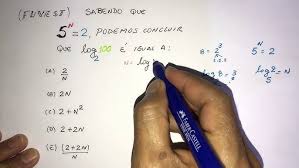 (FUVEST) SABENDO QUE
5^N = 2, PODEMOS CONCLUIR
QUE log₂ 100 É IGUAL A:
(A) 2/N
(B) 2N
(C) 2+N²
(D) 2+2N
(E) (2+2N)/N
8 = 2³
log 8 = 3
2
5^N = 2
log 2 = N
5
N = log
FABER-CASTELL